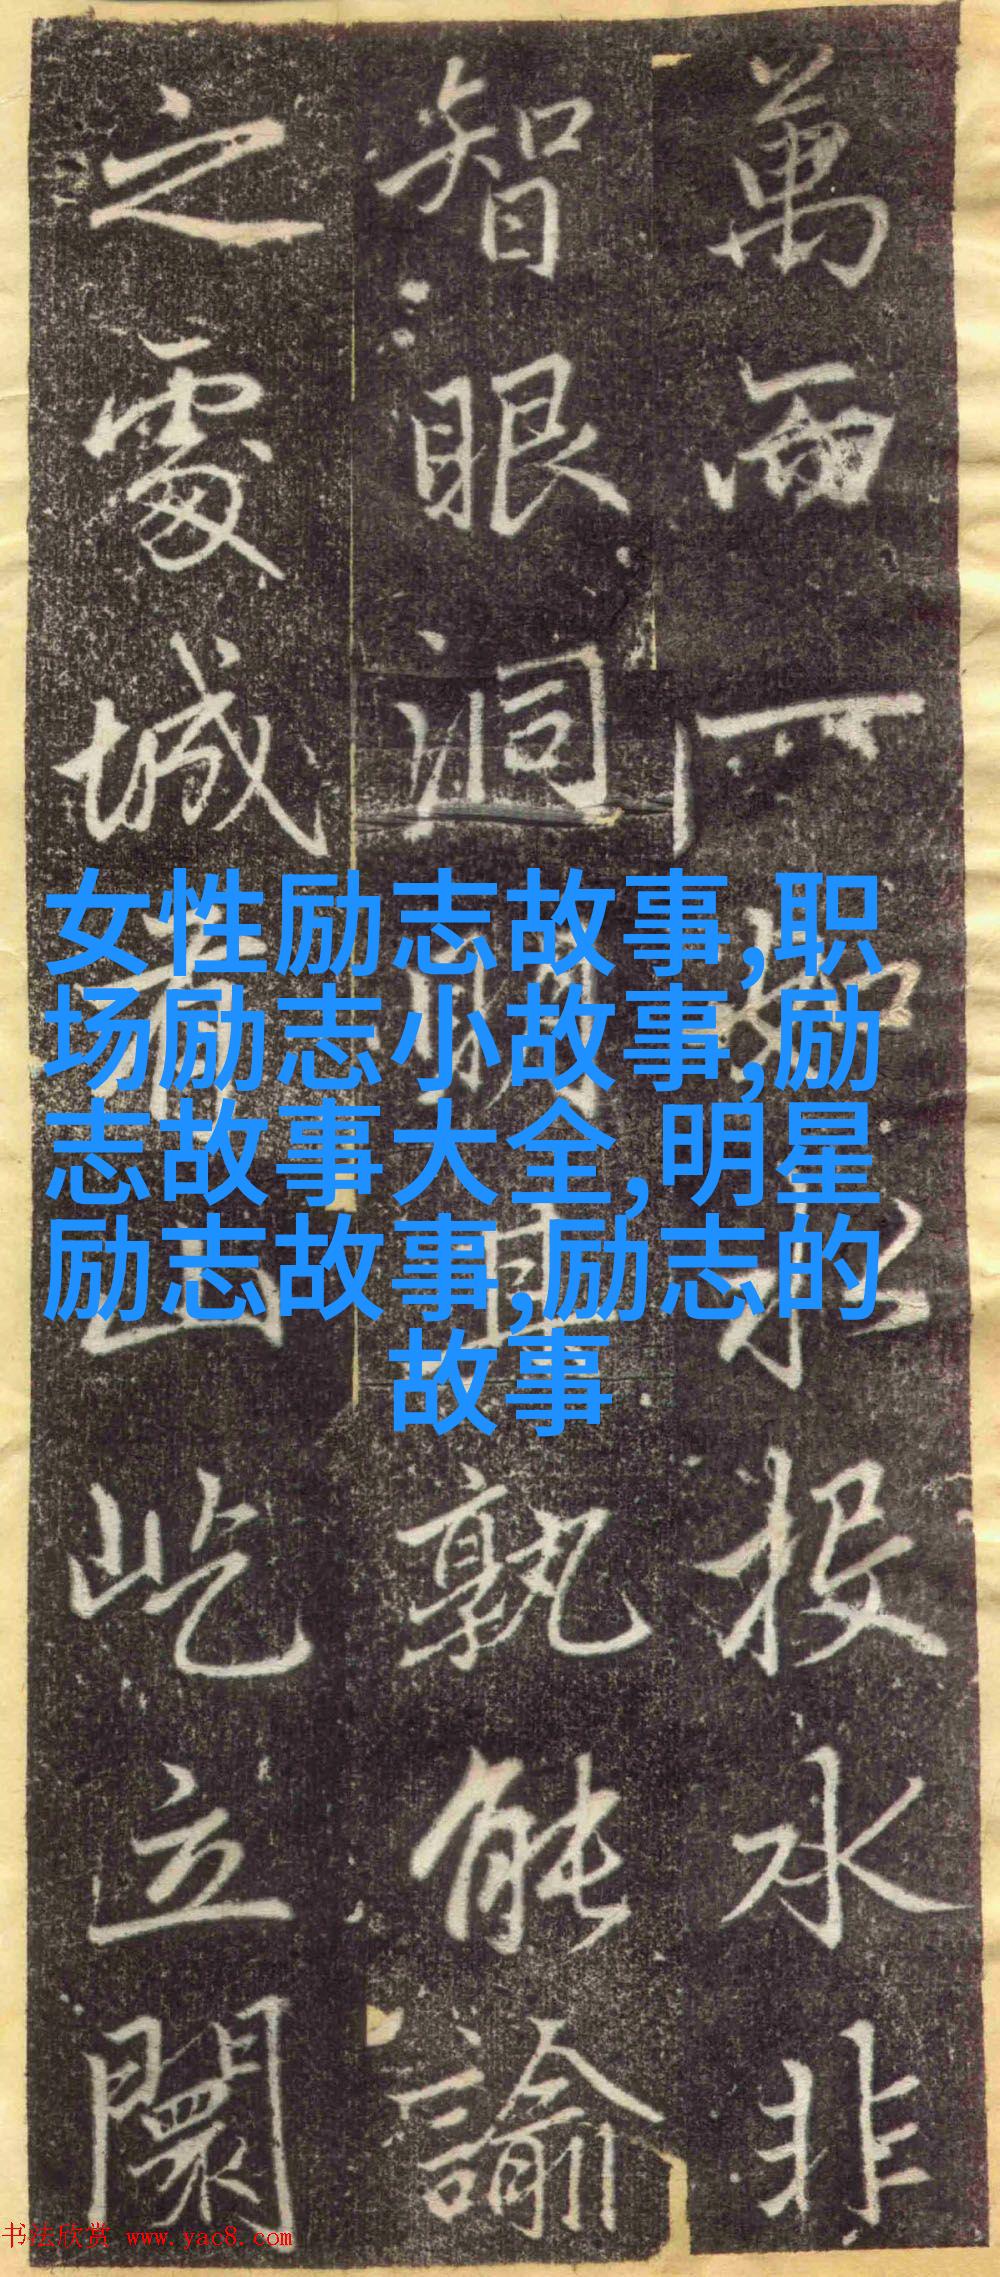 萬一如水投水非
智眼洞且孰能諭
之處城山屹立闤
女性励志故事,职
场励志小故事,励
志故事大全,明星
励志故事,励志的
故事
书法欣赏 www.yac8.com